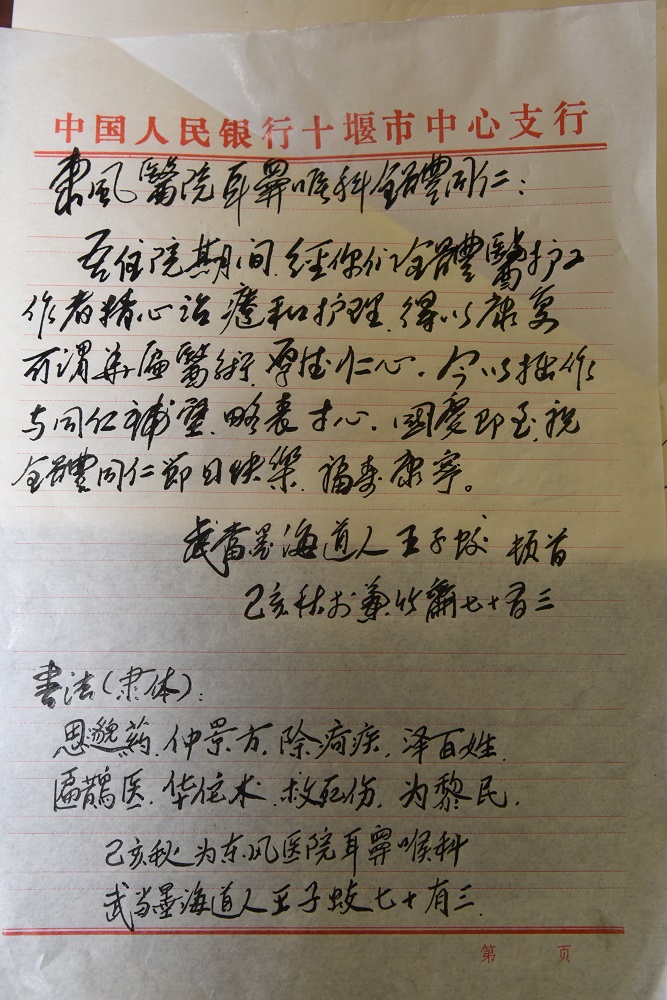 中国人民银行十堰市中心支行
東風醫院耳鼻喉科全體同仁：
吾住院期间，經你们全體醫护工
作者精心治療和护理，得以康复
可谓華扁醫術，厚德仁心。今以拙作
与同仁補壁，略表寸心。國慶即至，祝
全體同仁節日快樂，福寿康寧。
武當墨海道人王子蛟 顿首
己亥秋于兼竹齋七十有三
书法（隶体）：
思邈药，仲景方，除疴疾，泽百姓，
扁鹊医，华佗术，救死伤，为黎民，
己亥秋为东风医院耳鼻喉科
武当墨海道人王子蛟七十有三
第 页